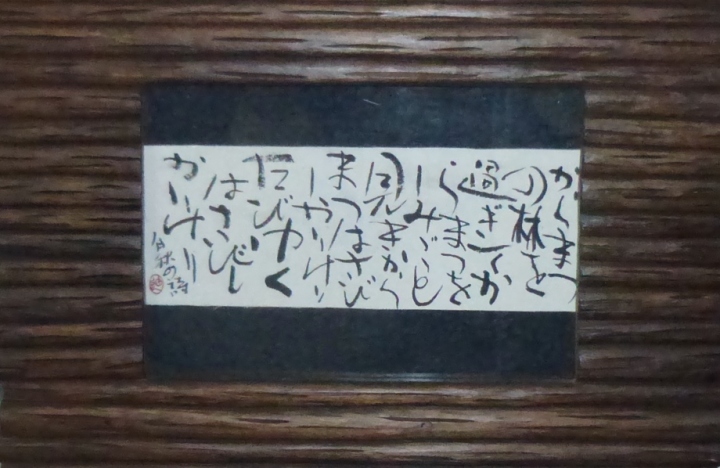 からまつ
の林を
過ぎてか
らまつを
しみ〴〵と
見きから
まつはさび
しかりけり
たびゆく
はさびし
かりけり
白秋の詩